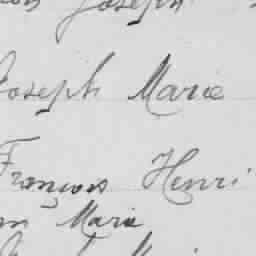 Joseph
Joseph Marie
François Henri
Marie